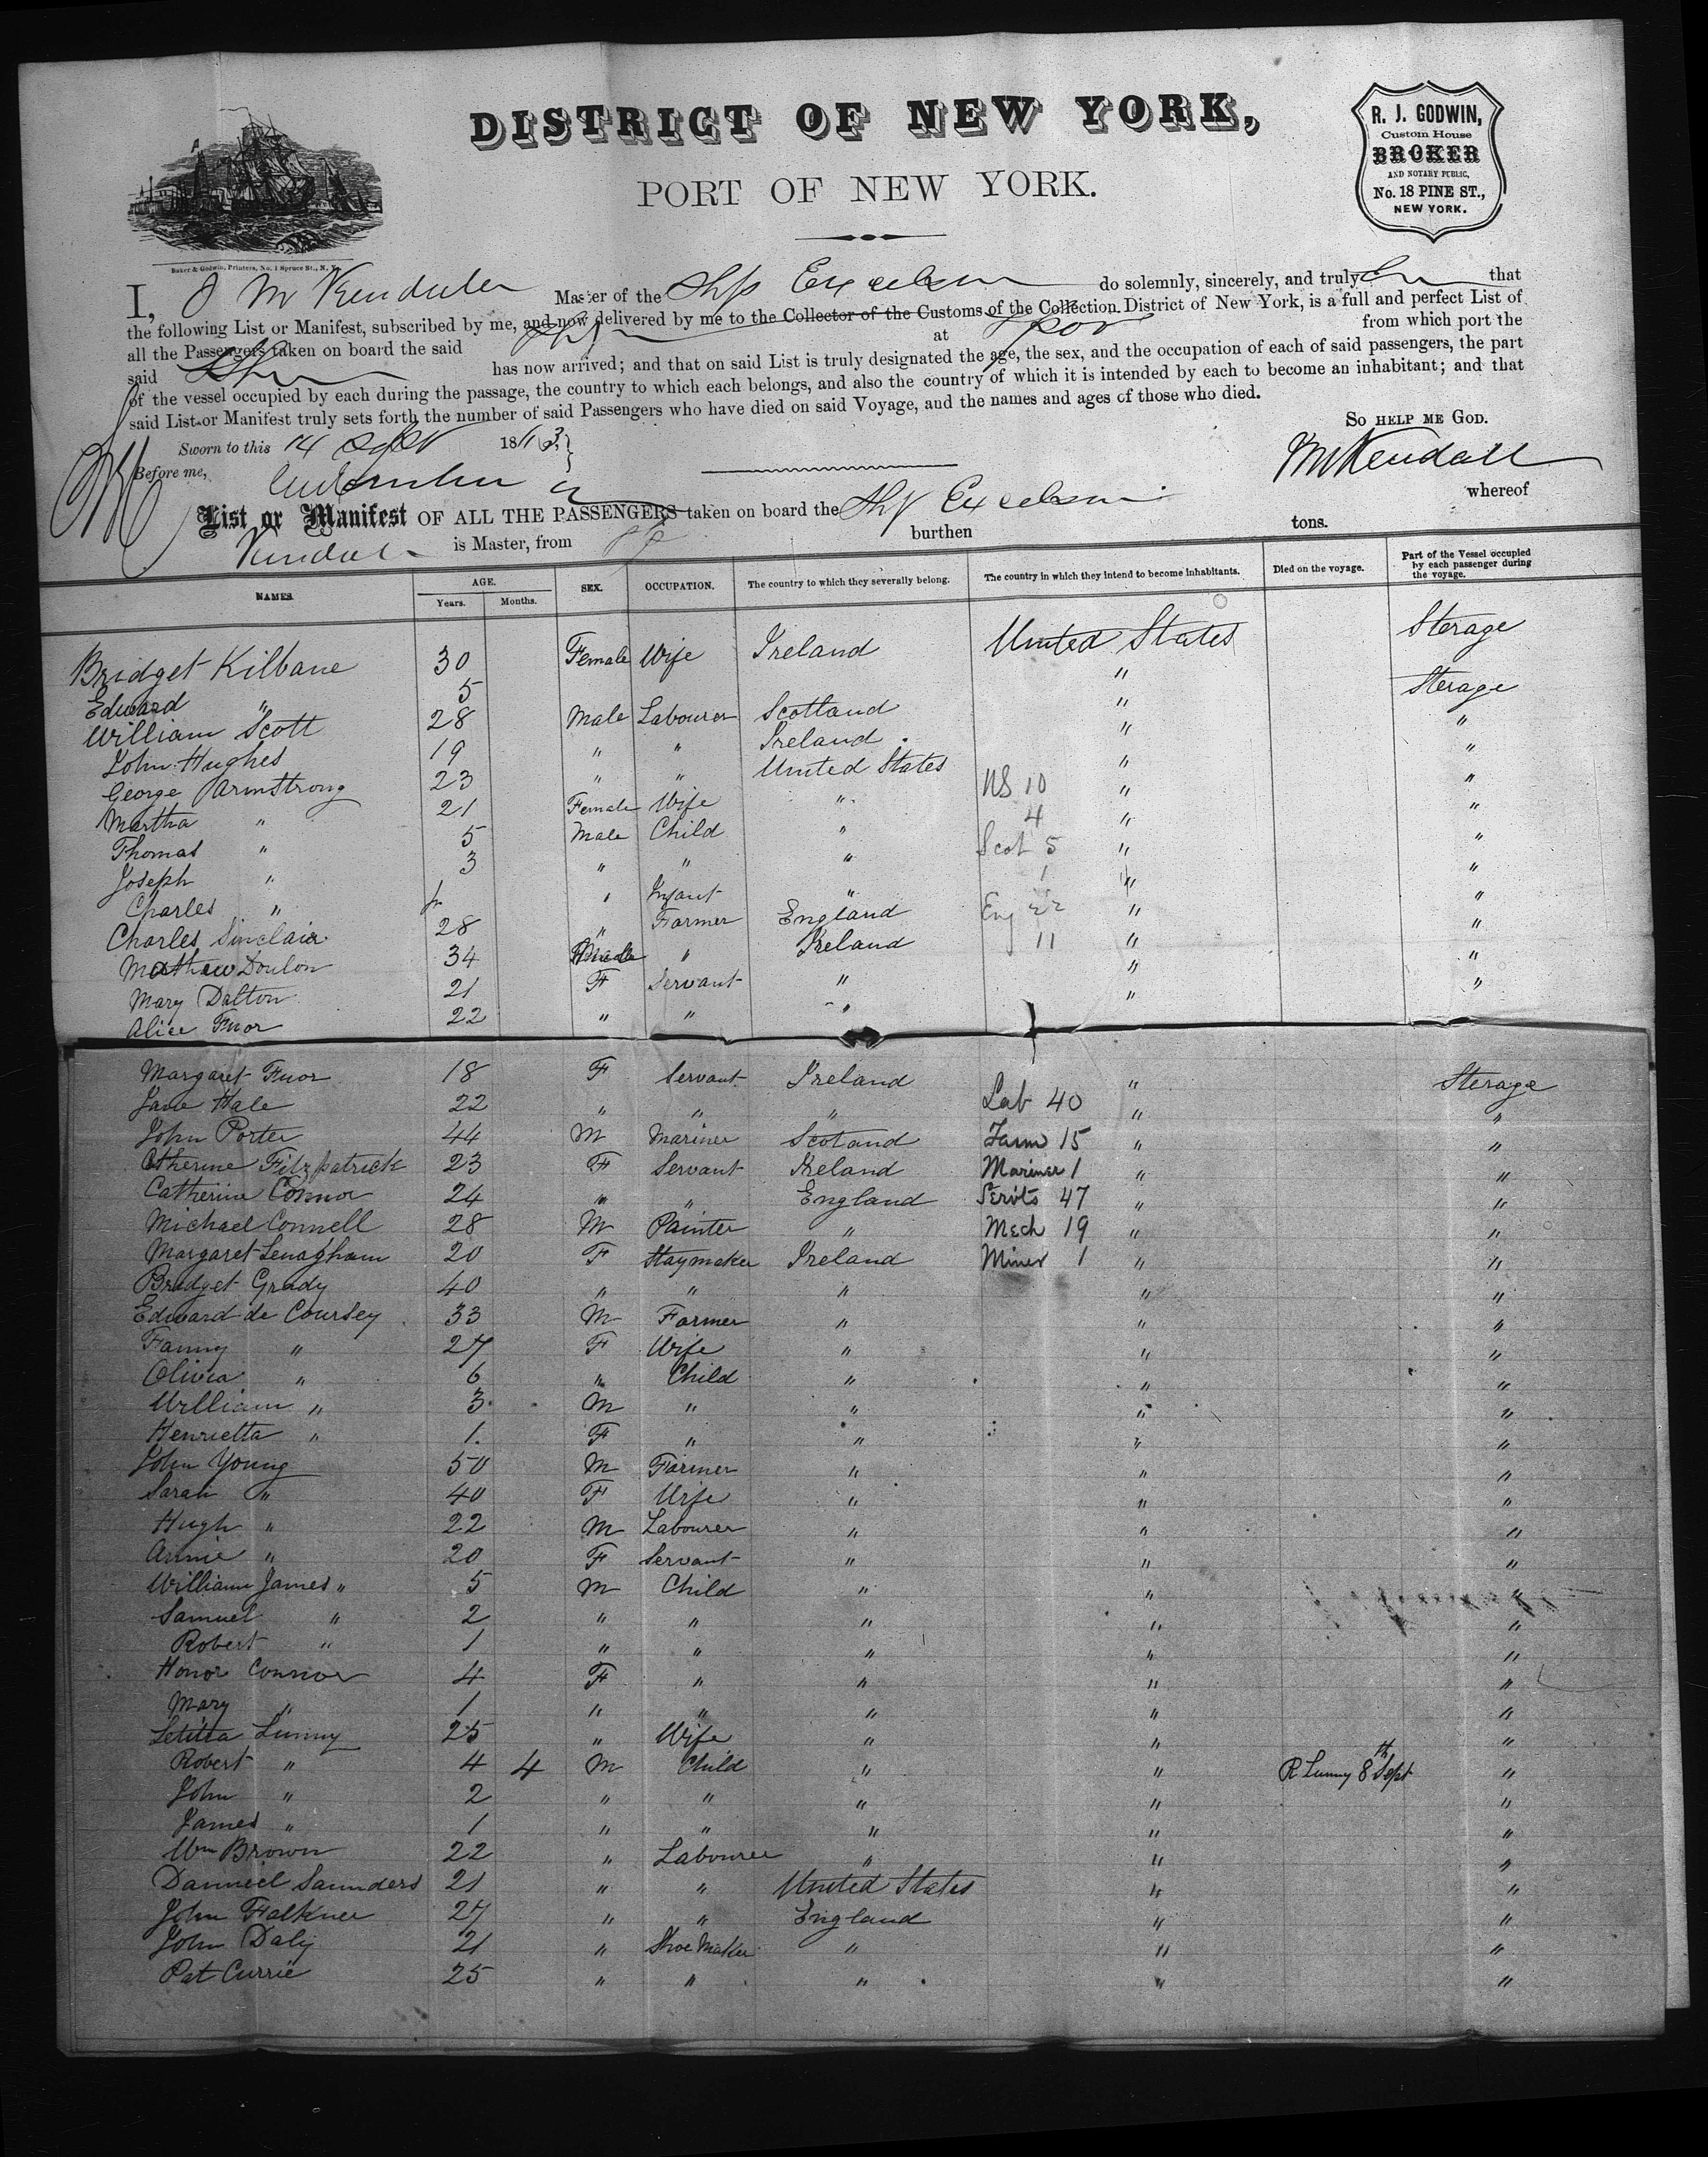 DISTRICT OF NEW YORK,
PORT OF NEW YORK.
R. J. GODWIN,
Custom House
BROKER
AND NOTARY PUBLIC,
No. 18 PINE ST.,
NEW YORK.
Baker & Godwin, Printers, No. 1 Spruce St., N. Y.
I, Master of the Ship do solemnly, sincerely, and truly that
the following List or Manifest, subscribed by me, and now delivered by me to the Collector of the Customs of the Collection District of New York, is a full and perfect List of
all the Passengers taken on board the said at from which port the
said has now arrived; and that on said List is truly designated the age, the sex, and the occupation of each of said passengers, the part
of the vessel occupied by each during the passage, the country to which each belongs, and also the country of which it is intended by each to become an inhabitant; and that
said List or Manifest truly sets forth the number of said Passengers who have died on said Voyage, and the names and ages of those who died.
So HELP ME GOD.
Sworn to this 14 Sept 1863
Before me,
M Kendall
List or Manifest OF ALL THE PASSENGERS taken on board the whereof
is Master, from burthen tons.
NAMES. AGE. Years. Months. SEX. OCCUPATION. The country to which they severally belong. The country in which they intend to become inhabitants. Died on the voyage. Part of the Vessel occupied by each passenger during the voyage.
Bridget Kilbane 30 Female Wife Ireland United States Sterage
Edward " 5 " Sterage
William Scott 28 Male Labourer Scotland " "
John Hughes 19 " " Ireland " "
George Armstrong 23 " " United States " "
Martha " 21 Female Wife " US 10 " "
Thomas " 5 Male Child " 4 " "
Joseph " 3 " " " Scot 5 " "
Charles " " Infant " 1 " "
Charles Sinclair 28 " Farmer England Eng 22 " "
Mathew Donlon 34 Male " Ireland 11 " "
Mary Dalton 21 F Servant " " "
Alice Fuor 22 " " " "
Margaret Fuor 18 F Servant Ireland " Sterage
Jane Hale 22 " " " Lab 40 " "
John Porter 44 M Mariner Scotand Farm 15 " "
Catherine Fitzpatrick 23 F Servant Ireland Mariner 1 " "
Catherine Connor 24 " " England Servts 47 " "
Michael Connell 28 M Painter " Mech 19 " "
Margaret Lenagham 20 F Staymaker Ireland Miner 1 " "
Bridget Grady 40 " " " " "
Edward de Coursey 33 M Farmer " " "
Fanny " 27 F Wife " " "
Olivia " 6 " Child " " "
William " 3 M " " " "
Henrietta " 1 F " " " "
John Young 50 M Farmer " " "
Sarah " 40 F Wife " " "
Hugh " 22 M Labourer " " "
Annie " 20 F Servant " " "
William James " 5 M Child " " "
Samuel " 2 " " " " "
Robert " 1 " " " " "
Honor Connor 4 F " " " "
Mary " 1 " " " " "
Letitia Lunny 25 " Wife " " "
Robert " 4 4 M Child " " R Lunny 8th Sept "
John " 2 " " " " "
James " 1 " " " " "
Wm Brown 22 " Labourer " " "
Danniel Saunders 21 " " United States " "
John Falkner 27 " " England " "
John Daly 21 " Shoe Maker " " "
Pat Currie 25 " " " " "